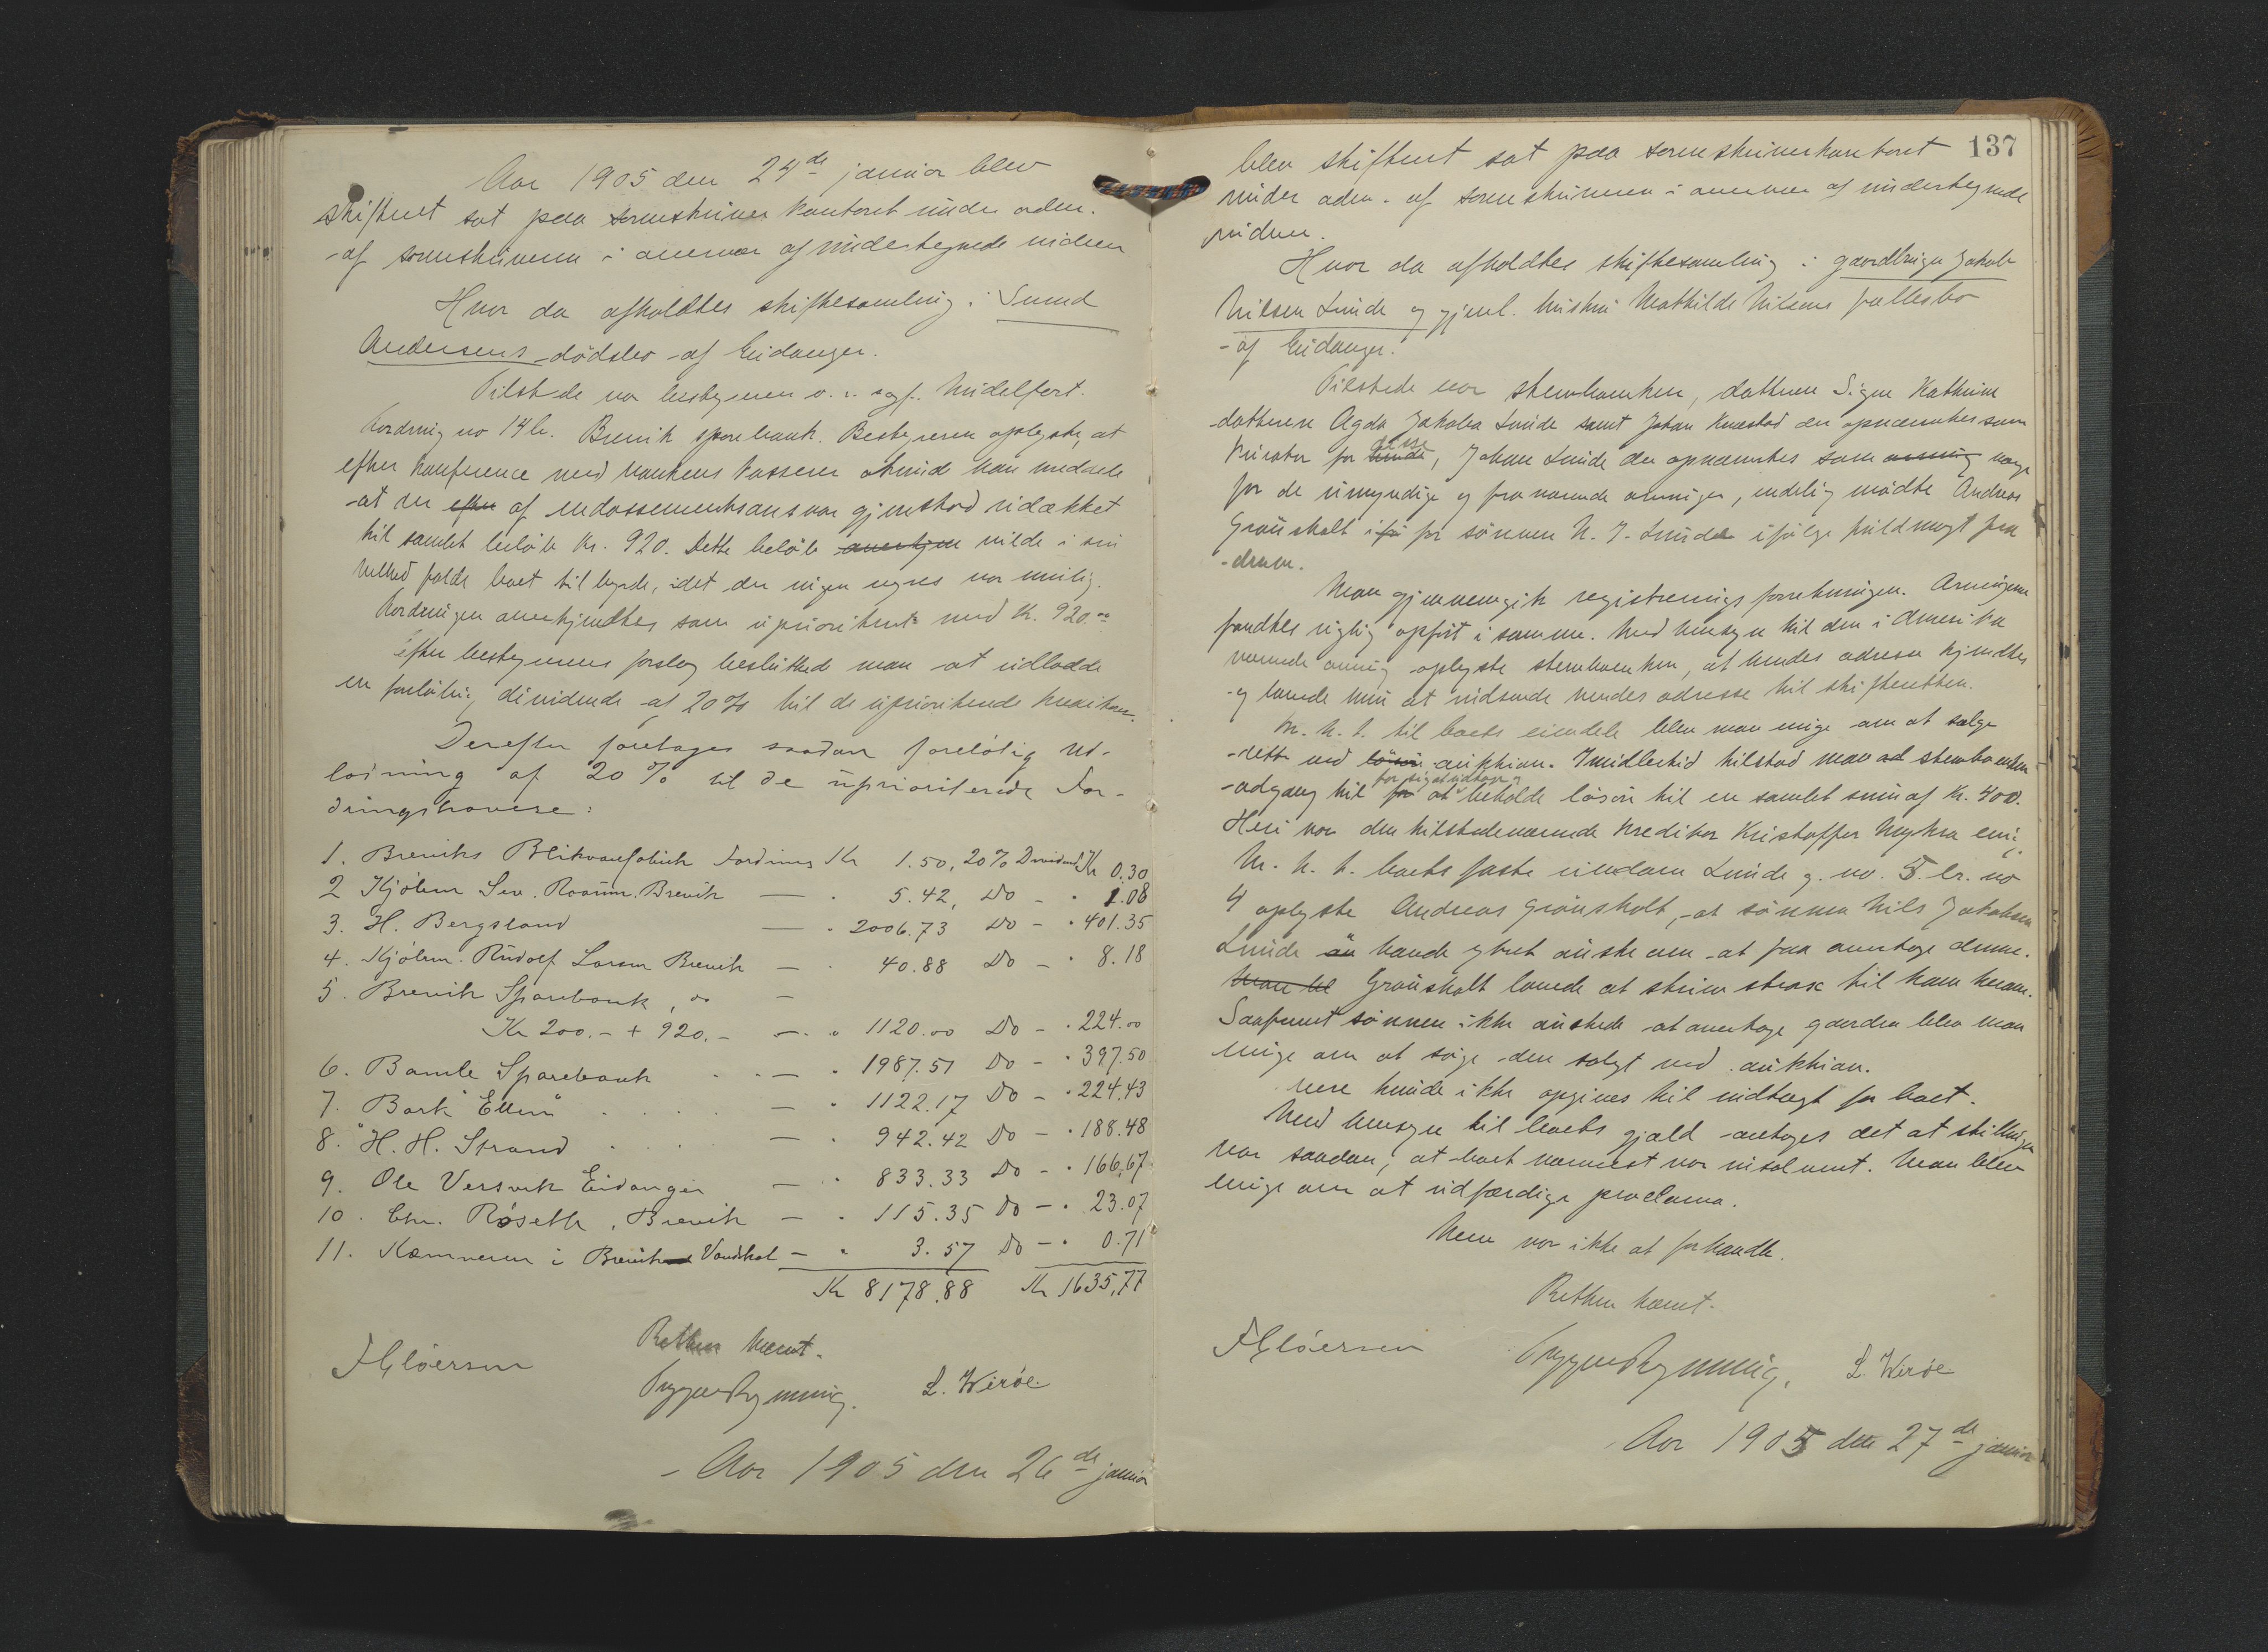 Aar 1905 den 24de januar blev
skifteret sat paa sorenskriver kontoret under adm.
af sorenskriveren i overvær af undertegnede vidner
Hvor da afholdtes skiftesamling i Svend
Andersens dödsbo af Eidanger.
Tilstede var bestyreren o.r. sagf. Midelfart.
Fordring no 14 b. Brevik sparebank. Bestyreren oplyste, at
efter konference med bankens kasserer kan meddele
at der efter af endossementsansvar gjenstod udækket
til samlet belöb Kr. 920. Dette belöb anerkjen vilde i sin
helhed falde boet til byrde, idet der ingen regres var mulig.
Fordringen anerkjendtes som uprioritert med Kr. 920.00
Efter bestyrerens forslag besluttede man at udlodde
en forlöbig dividende af 20% til de uprioriterede kreditorer.
Derefter foretages saadan foreløbig ud-
lodning af 20% til de uprioriterede For-
dringshavere:
1. Breviks Blikvarefabrik Fordring Kr 1.50, 20% Dividende Kr 0.30
2 Kjøbm Sev. Roarim, Brevik — " 5.42, Do - " 1.08
3. H. Bergsland — " 2006.73 Do - " 401.35
4. Kjøbm. Rudolf Larsen Brevik — " 40.88 Do - " 8.18
5. Brevik Sparebank, do —
Kr 200.- + 920.- — " 1120.00 Do - " 224.00
6. Bamle Sparebank — " 1987.51 Do - " 397.50
7. Bark "Ellen" — " 1122.17 Do - " 224.43
8. "H. H. Strand — " 942.42 Do - " 188.48
9. Ole Versvik Eidanger — " 833.33 Do - " 166.67
10. Chr. Røseth, Brevik — " 115.35 Do - " 23.07
11. Kæmneren i Brevik Vandskat — " 3.57 Do - " 0.71
Kr 8178.88 Kr 1635,77
Retten hævet.
F Cløersen
Trygve Rynning. L. Werøe
Aar 1905 den 26de januar
137
blev skifteret sat paa sorenskriverkontoret
under adm. af sorenskriveren i overvær af undertegnede
vidner.
Hvor da afholdtes skiftesamling i gaardbruger Jakob
Nilsen Lunde og gjenl. hustru Mathilde Nilsens fællesbo
af Eidanger.
Tilstede var stervboenken, datteren Signe Kathrine
datteren Agda Jakoba Lunde samt Johan Knarstad der opnævntes som
kurator for hende disse, Johan Lunde der opnævntes som arving værge
for de umyndige og fraværende arvinger, endelig mödte Andreas
Grönsholt i fu for sönnen N. J. Lunde ifölge fuldmagt fra
denne.
Man gjennemgik registrerings forretningen. Arvingerne
fandtes rigtig opfört i samme. Med hensyn til den i Amerika
værende arving oplyste stervboenken, at hendes adresse kjendtes
og lovede hun at indsende hendes adresse til skifteretten.
M. h. t. boets eiendele blev man enige om at sælge
dette ved lösöre auktion. Imidlertid tilstod man ad stervboenken
adgang til for at for sig at udtage beholde lösöre til en samlet sum af Kr. 400.
Heri var den tilstedeværende kreditor Kristoffer Myhra enig.
M. h. t. boets faste eiendom Lunde g. no. 5. br. no
4 oplyste Andreas Grönsholt, at sönnen Nils Jakobsen
Lunde havde ytret önske om at faa overtage denne.
Man bl Grönsholt lovede at skrive strax til ham herom.
Saafremt sönnen ikke önskede at overtage gaarden blev man
enige om at söge den solgt ved auktion.
Mere kunde ikke opgives til indtægt for boet.
Med hensyn til boets gjæld antoges det at stillingen
var saadan, at boet nærmest var insolvent. Man blev
enige om at udfærdige proclama.
Mere var ikke at forhandle.
Retten hævet.
F Cløersen
Trygve Rynning. L. Werøe
Aar 1905 den 27de januar